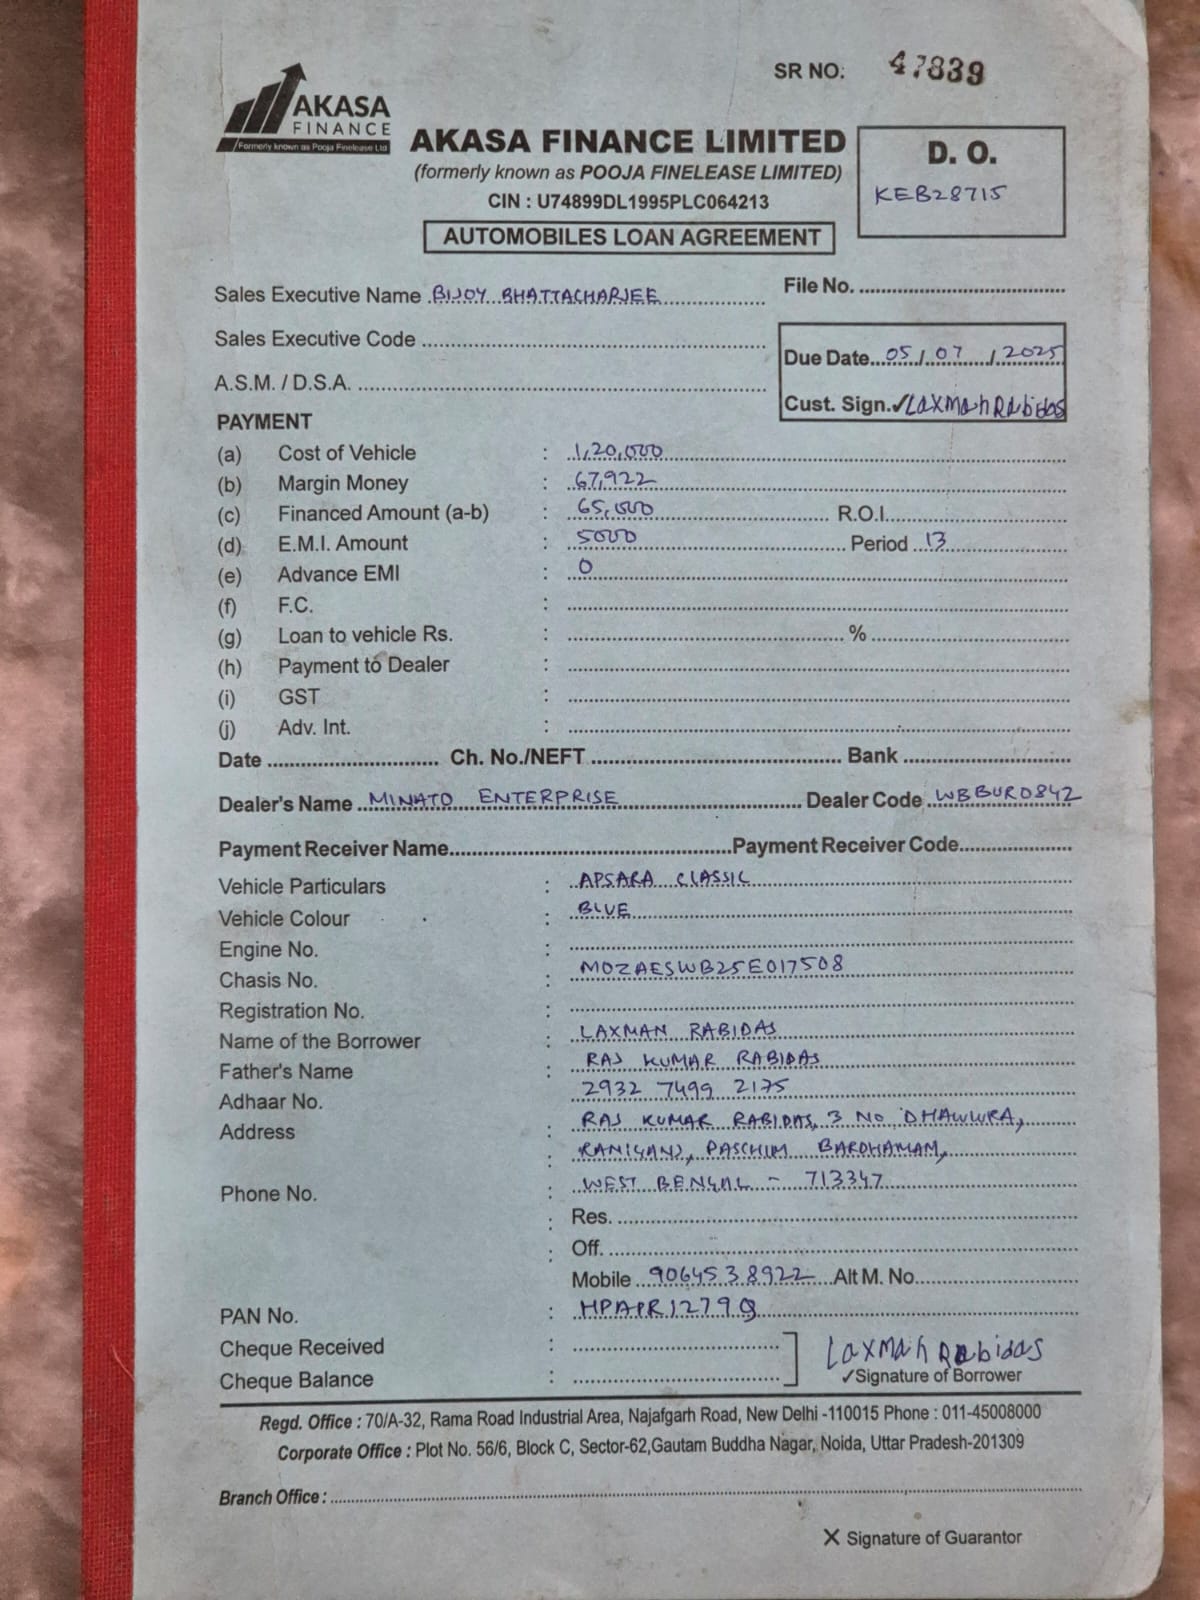 SR NO. 47839
AKASA
FINANCE
Formerly known as Pooja Finelease Ltd
AKASA FINANCE LIMITED
(formerly known as POOJA FINELEASE LIMITED)
CIN : U74899DL1995PLC064213
AUTOMOBILES LOAN AGREEMENT
D. O.
KEB28715
Sales Executive Name BIJOY BHATTACHARJEE
File No.
Sales Executive Code
A.S.M. / D.S.A.
Due Date 05/07/2025
Cust. Sign. ✓Laxman Rabidas
PAYMENT
(a) Cost of Vehicle : 1,20,000
(b) Margin Money : 67,922
(c) Financed Amount (a-b) : 65,000 R.O.I.
(d) E.M.I. Amount : 5000 Period 13
(e) Advance EMI : 0
(f) F.C. :
(g) Loan to vehicle Rs. : %
(h) Payment to Dealer :
(i) GST :
(j) Adv. Int. :
Date Ch. No./NEFT Bank
Dealer's Name MINATO ENTERPRISE Dealer Code WBBUR0842
Payment Receiver Name Payment Receiver Code
Vehicle Particulars : APSARA CLASSIC
Vehicle Colour : BLUE
Engine No. :
Chasis No. : MOZAESWB25E017508
Registration No. :
Name of the Borrower : LAXMAN RABIDAS
Father's Name : RAJ KUMAR RABIDAS
Adhaar No. 2932 7499 2175
Address : RAJ KUMAR RABIDAS, 3 NO DHAWWRA,
: RANIGANJ, PASCHIM BARDHAMAM,
Phone No. : WEST BENGAL - 713347
: Res.
: Off.
Mobile 9064538922 Alt M. No.
PAN No. : HPAPR1279Q
Cheque Received :
Cheque Balance :
Laxman Rabidas
✓Signature of Borrower
Regd. Office : 70/A-32, Rama Road Industrial Area, Najafgarh Road, New Delhi -110015 Phone : 011-45008000
Corporate Office : Plot No. 56/6, Block C, Sector-62,Gautam Buddha Nagar, Noida, Uttar Pradesh-201309
Branch Office :
X Signature of Guarantor